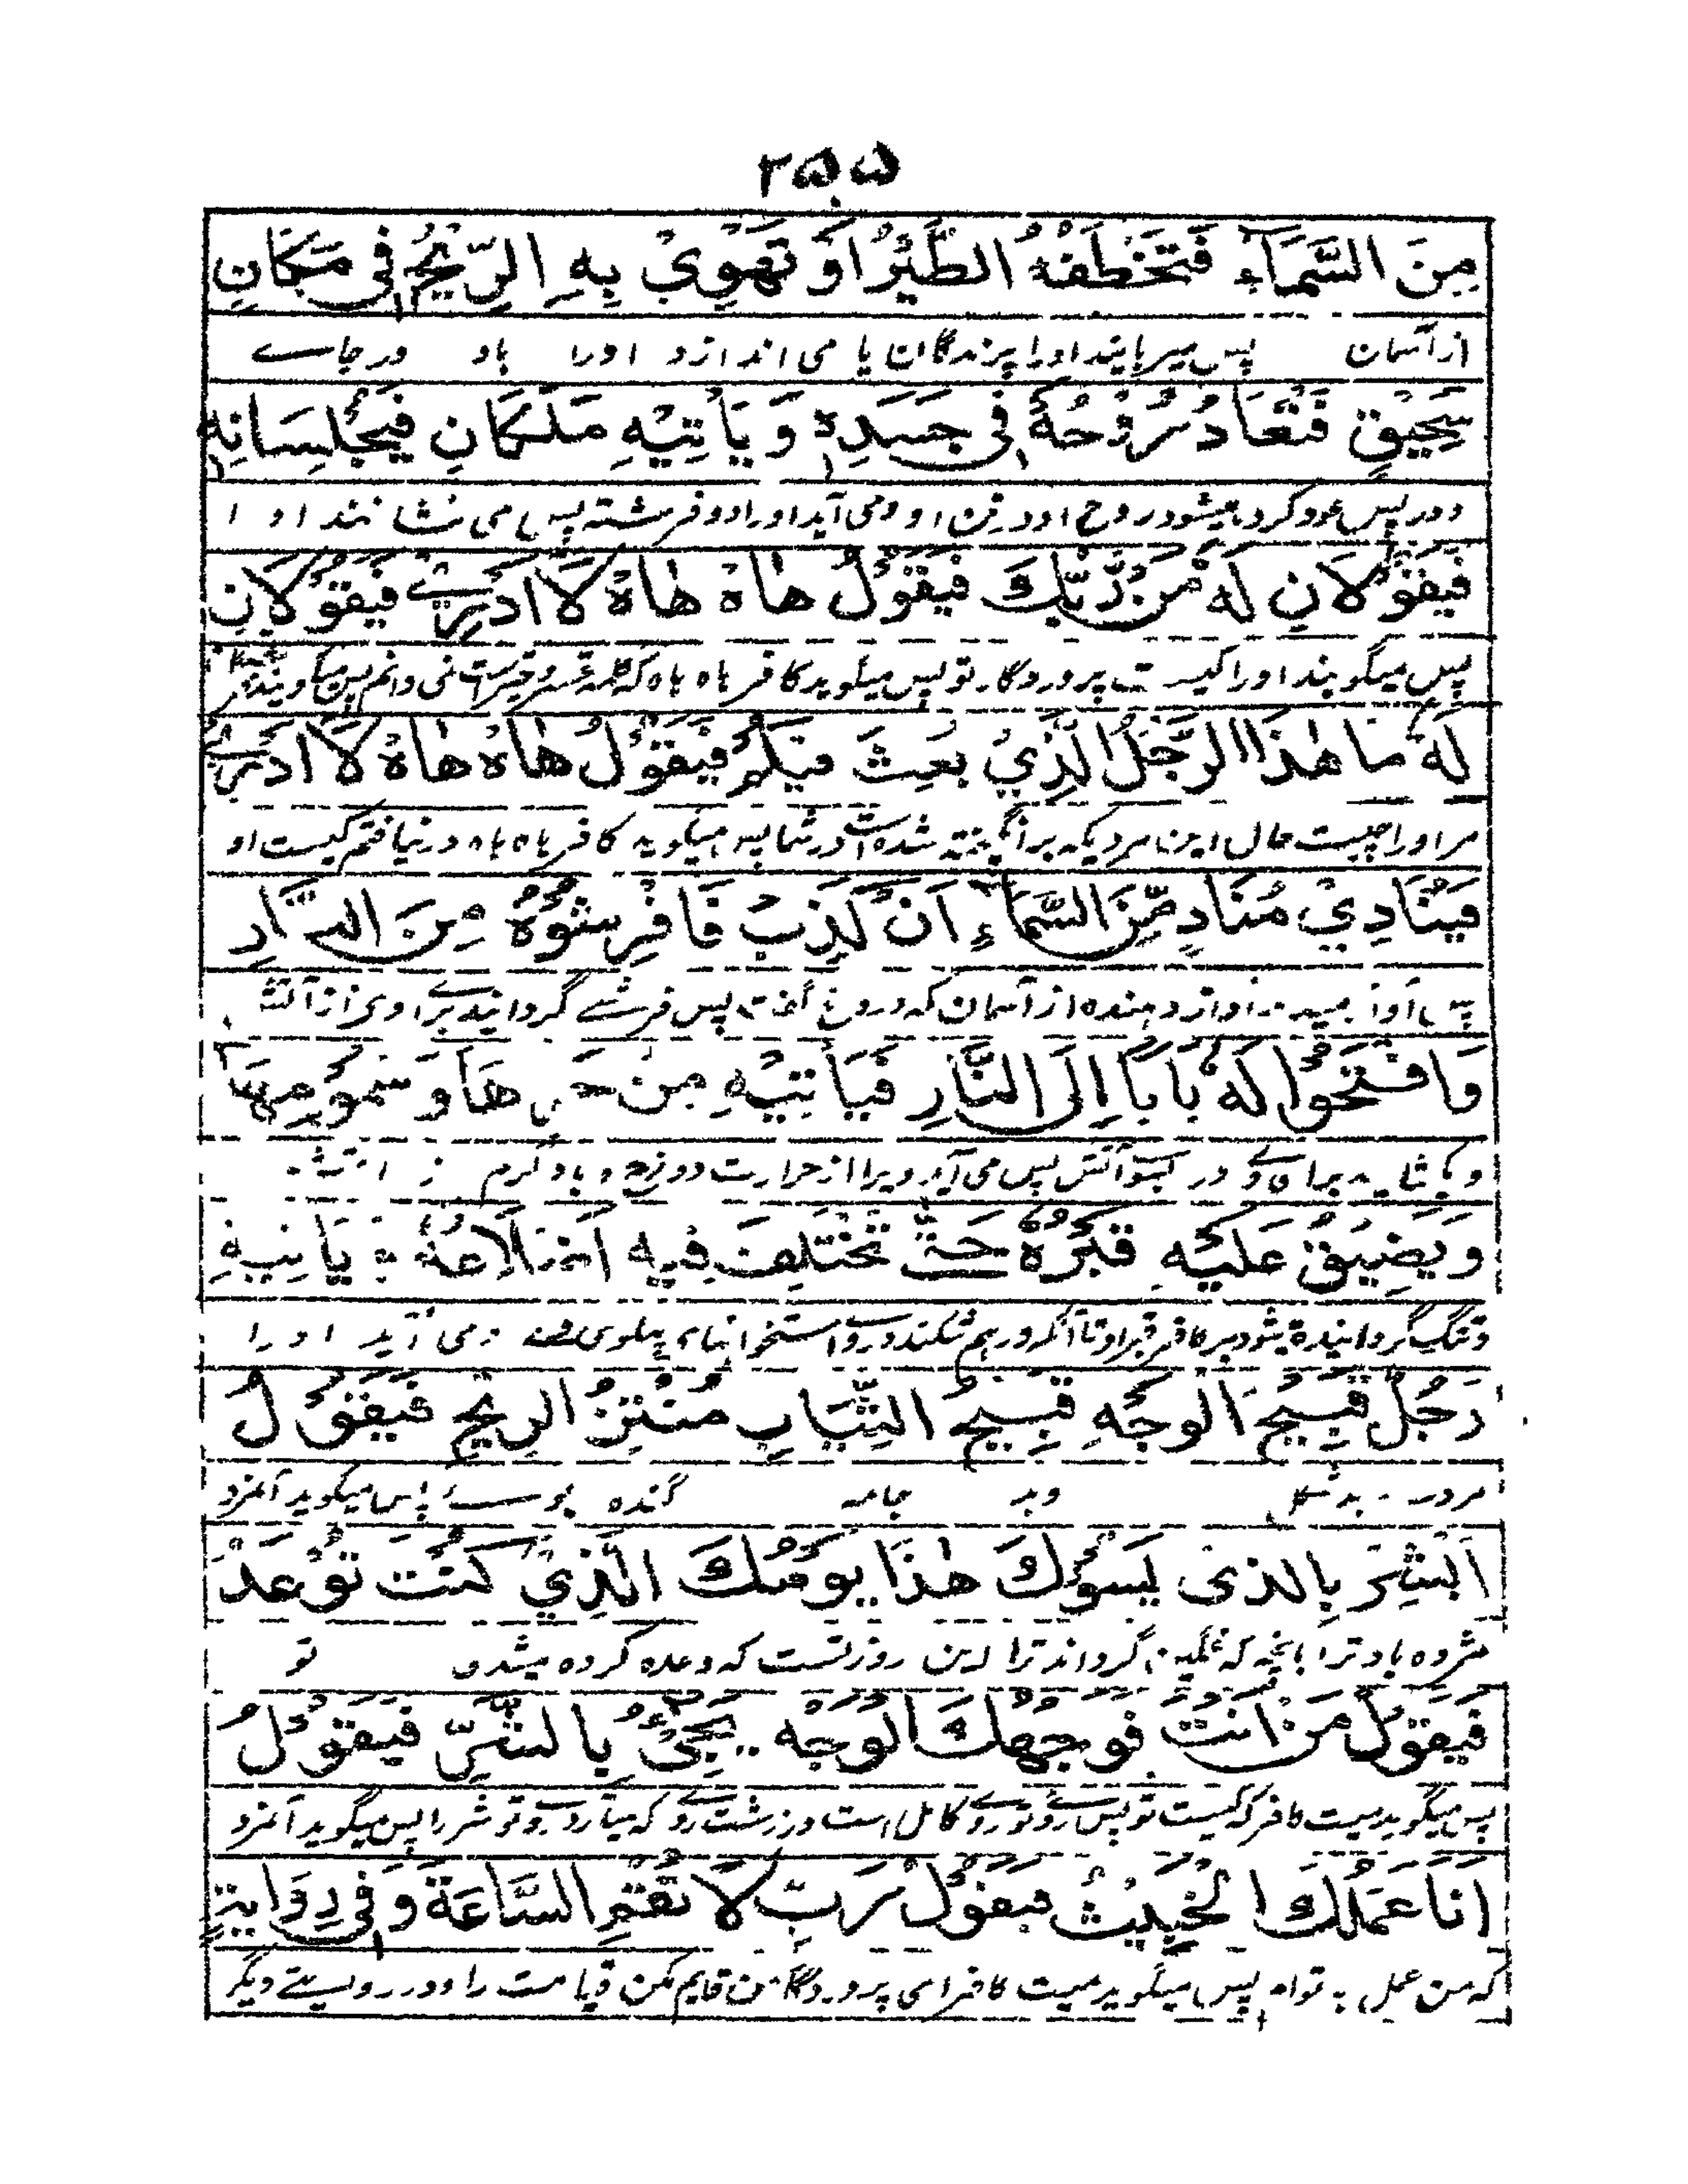 ۲۵۵
مِنَ السَّمَآءِ فَتَخْطَفُهُ الطَّيْرُ اَوْ تَهْوِىْ بِهِ الرِّيْحُ فِىْ مَكَانٍ
از آسمان پس میربایند او را پرندگان یا می اندازد اورا باد در جاے
سَحِيْقٍ فَتُعَادُ رُوْحُهٗ فِىْ جَسَدِهٖ وَ يَأْتِيْهِ مَلَكَانِ فَيُجْلِسَانِهٖ
دور پس عود کرده میشود روح او در تن او و می آید او را دو فرشته پس می نشانند او ا
فَيَقُوْلَانِ لَهٗ مَنْ رَّبُّكَ فَيَقُوْلُ هَاهْ هَاهْ لَا اَدْرِىْ فَيَقُوْلَانِ
پس میگویند او را کیست پروردگار تو پس میگوید کافر هاه هاه که نمی دانم پس میگویند
لَهٗ مَا هٰذَا الرَّجُلُ الَّذِيْ بُعِثَ فِيْكُمْ فَيَقُوْلُ هَاهْ هَاهْ لَا اَدْرِىْ
مر او را چیست حال این مردیکه برانگیخته شده است در شما پس میگوید کافر هاه هاه در نیافتم کیست او
فَيُنَادِيْ مُنَادٍ مِّنَ السَّمَآءِ اَنْ كَذَبَ فَافْرِشُوْهُ مِنَ النَّارِ
پس آواز میدهد آواز دهنده از آسمان که دروغ گفت پس فرشے گردانید براے وی از آتش
وَافْتَحُوْا لَهٗ بَابًا اِلَى النَّارِ فَيَأْتِيْهِ مِنْ حَرِّهَا وَ سَمُوْمِهَا
و بکشایید براے وی در بسوے آتش پس می آید ویرا از حرارت دوزخ و باد گرم
وَيُضَيَّقُ عَلَيْهِ قَبْرُهٗ حَتّٰى تَخْتَلِفَ فِيْهِ اَضْلَاعُهٗ وَ يَأْتِيْهِ
و تنگ گردانیده میشود بر کافر قبر او تا آنکه در هم شکند در وے استخوانهاے پهلوی و می آید او را
رَجُلٌ قَبِيْحُ الْوَجْهِ قَبِيْحُ الثِّيَابِ مُنْتِنُ الرِّيْحِ فَيَقُوْلُ
مردے بد شکل وبد جامه گنده بوے پس میگوید آنمرد
اَبْشِرْ بِالَّذِىْ يَسُوْءُكَ هٰذَا يَوْمُكَ الَّذِيْ كُنْتَ تُوْعَدُ
مژده باد ترا بانچه که غمگین گرداند ترا این روز تست که وعده کرده میشدی تو
فَيَقُوْلُ مَنْ اَنْتَ فَوَجْهُكَ الْوَجْهُ يَجِىْءُ بِالشَّرِّ فَيَقُوْلُ
پس میگوید میت کافر که کیست تو پس روے تو روے کامل است در زشت روے که میآرد روے تو شر را پس میگوید آنمرد
اَنَا عَمَلُكَ الْخَبِيْثُ فَيَقُوْلُ رَبِّ لَا تُقِمِ السَّاعَةَ وَ فِىْ رِوَايَةٍ
که من عمل بد توام پس میگوید میت کافر ای پروردگار من قایم مکن قیامت را و در روایتے دیگر